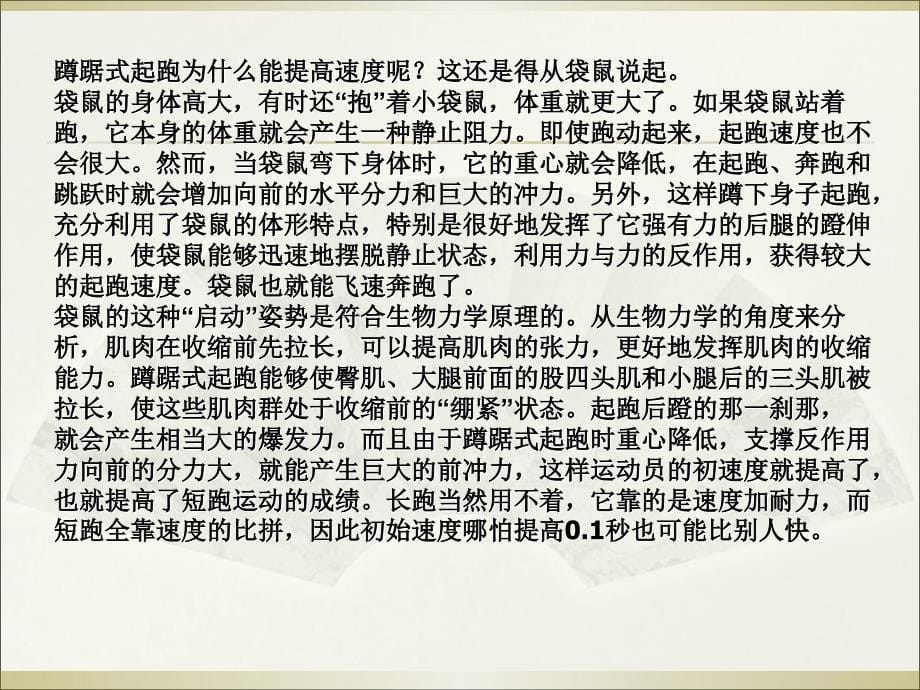 蹲踞式起跑为什么能提高速度呢？这还是得从袋鼠说起。
袋鼠的身体高大，有时还“抱”着小袋鼠，体重就更大了。如果袋鼠站着
跑，它本身的体重就会产生一种静止阻力。即使跑动起来，起跑速度也不
会很大。然而，当袋鼠弯下身体时，它的重心就会降低，在起跑、奔跑和
跳跃时就会增加向前的水平分力和巨大的冲力。另外，这样蹲下身子起跑，
充分利用了袋鼠的体形特点，特别是很好地发挥了它强有力的后腿的蹬伸
作用，使袋鼠能够迅速地摆脱静止状态，利用力与力的反作用，获得较大
的起跑速度。袋鼠也就能飞速奔跑了。
袋鼠的这种“启动”姿势是符合生物力学原理的。从生物力学的角度来分
析，肌肉在收缩前先拉长，可以提高肌肉的张力，更好地发挥肌肉的收缩
能力。蹲踞式起跑能够使臀肌、大腿前面的股四头肌和小腿后的三头肌被
拉长，使这些肌肉群处于收缩前的“绷紧”状态。起跑后蹬的那一刹那，
就会产生相当大的爆发力。而且由于蹲踞式起跑时重心降低，支撑反作用
力向前的分力大，就能产生巨大的前冲力，这样运动员的初速度就提高了，
也就提高了短跑运动的成绩。长跑当然用不着，它靠的是速度加耐力，而
短跑全靠速度的比拼，因此初始速度哪怕提高0.1秒也可能比别人快。